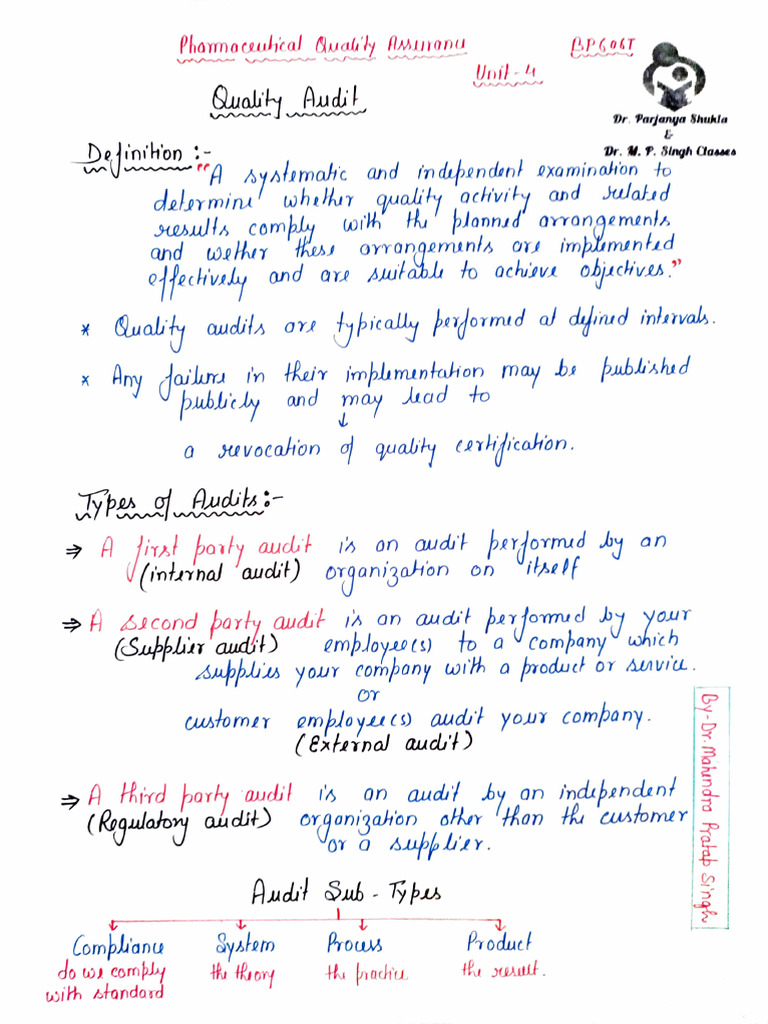 Pharmaceutical Quality Assurance BP606T
Unit-4
Dr. Parjanya Shukla
&
Dr. M. P. Singh Classes
Quality Audit
Definition :-
"A systematic and independent examination to
determine whether quality activity and related
results comply with the planned arrangements
and wether these arrangements are implemented
effectively and are suitable to achieve objectives."
* Quality audits are typically performed at defined intervals.
* Any failure in their implementation may be published
publicly and may lead to
↓
a revocation of quality certification.
Types of Audits:-
⇒ A first party audit is an audit performed by an
(internal audit) organization on itself
⇒ A second party audit is an audit performed by your
(Supplier audit) employee(s) to a company which
supplies your company with a product or service.
or
customer employee(s) audit your company.
(External audit)
⇒ A third party audit is an audit by an independent
(Regulatory audit) organization other than the customer
or a supplier.
By-Dr. Mahendra Pratap Singh
Audit Sub-Types
Compliance System Process Product
do we comply the theory the practice the result.
with standard